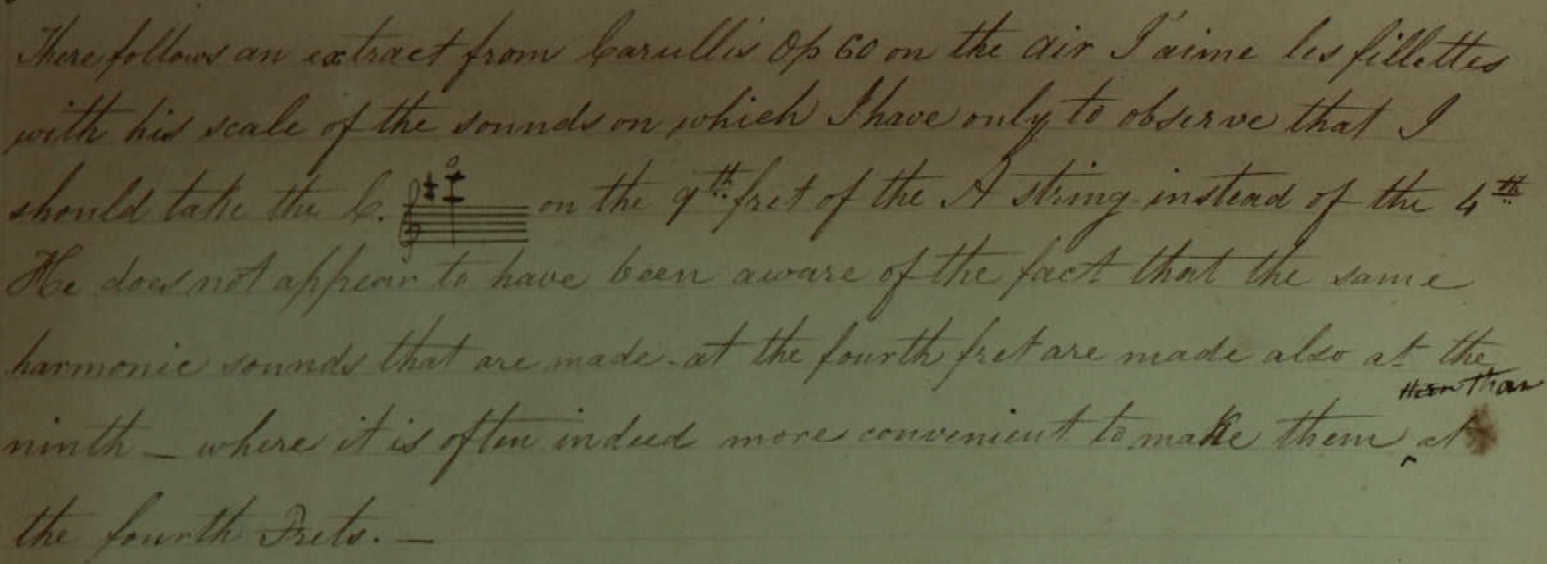 There follows an extract from Carulli's Op 60 on the air J'aime les fillettes
with his scale of the sounds on which I have only to observe that I
should take the C. on the 9th. fret of the A string instead of the 4th.
He does not appear to have been aware of the fact that the same
harmonic sounds that are made at the fourth fret are made also at the
than
ninth — where it is often indeed more convenient to make them ‸ at
the fourth Frets. —